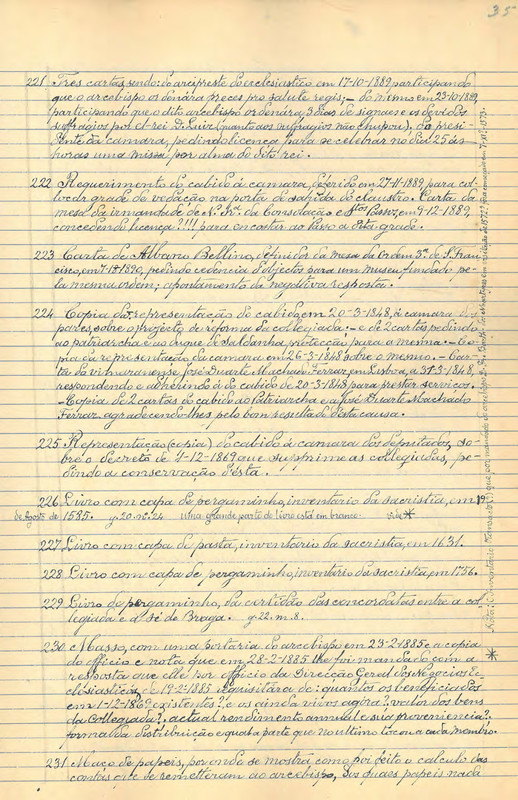 35
221 Tres cartas, sendo: do arcipreste do ecclesiastico em 17-10-1889, participando
que o arcebispo ordenára preces pro salute regis; – do mesmo em 23-10-1889
participando que o dito arcebispo ordenára 3 dias de signaes e os devidos
suffragios por el-rei D. Luiz (quanto aos suffragios não chupou), do presi-
dente da camara, pedindo licença para se celebrar no dia 25 ás
horas uma missa por alma do dito rei.
222 Requerimento do cabido á camara, deferido em 27-11-1889, para col-
locar grade de vedação na porta de sahida do claustro. Carta da
mesa da irmandade de N. Sr.ª da Consolação e Stos Passos, em 9-12-1889,
concedendo licença!!!! para encostar ao Passo a dita grade.
223 Carta de Albano Bellino, definidor da mesa da Ordem 3.ª de S. Fran-
cisco, em 7-18-1890, pedindo cedencia d'objectos para um museu fundado pe-
la mesma ordem; apontamento da negativa resposta.
224 Copia da representação do cabido, em 20-3-1848, á camara dos
pares, sobre o projecto de reforma da collegiada: – e de 2 cartas pedindo
ao patriarcha e ao duque de Saldanha, protecção para a mesma. – Co-
pia da representação da camara em 26-3-1848 sobre o mesmo. – Car-
ta do vimaranense José Duarte Machado Ferraz, em Lisboa, a 31-3-1848,
respondendo e adherindo á do cabido de 20-3-1848 para prestar serviços.
– Copia de 2 cartas do cabido ao Patriarcha e a José Duarte Machado
Ferraz agradecendo-lhes pelo bom resultado d'esta causa.
225 Representação (copia) do cabido á camara dos deputados, so-
bre o decreto de 4-12-1869 que supprime as collegiadas, pe-
dindo a conservação d'esta.
226 Livro com capa de pergaminho, inventario da sacristia, em 19
de Agosto de 1585. uma grande parte do livro está em branco.
227 Livro com capa de pasta, inventario da sacristia, em 1631.
228 Livro com capa de pergaminho, inventario da sacristia, em 1756.
229 Livro de pergaminho, da certidão das concordatas entre a col-
legiada e a sé de Braga.
230 Masso, com uma portaria do arcebispo em 23-2-1885 e a copia
do officio e nota que em 28-2-1885 lhe foi mandada com a
resposta que elle por officio da Direcção Geral dos Negocios Ec-
clesiasticos, de 19-2-1885 requisitára de: quantos os beneficiados
em 1-12-1869 existentes?, e os ainda vivos agora?, valor dos bens
da Collegiada?, actual rendimento annual e sua proveniencia?,
forma da distribuição e qual a parte que no ultimo tocou a cada membro.
231 Maço de papeis, por onde se mostra como foi feito o calculo das
contas que se remetteram ao arcebispo, dos quaes papeis nada